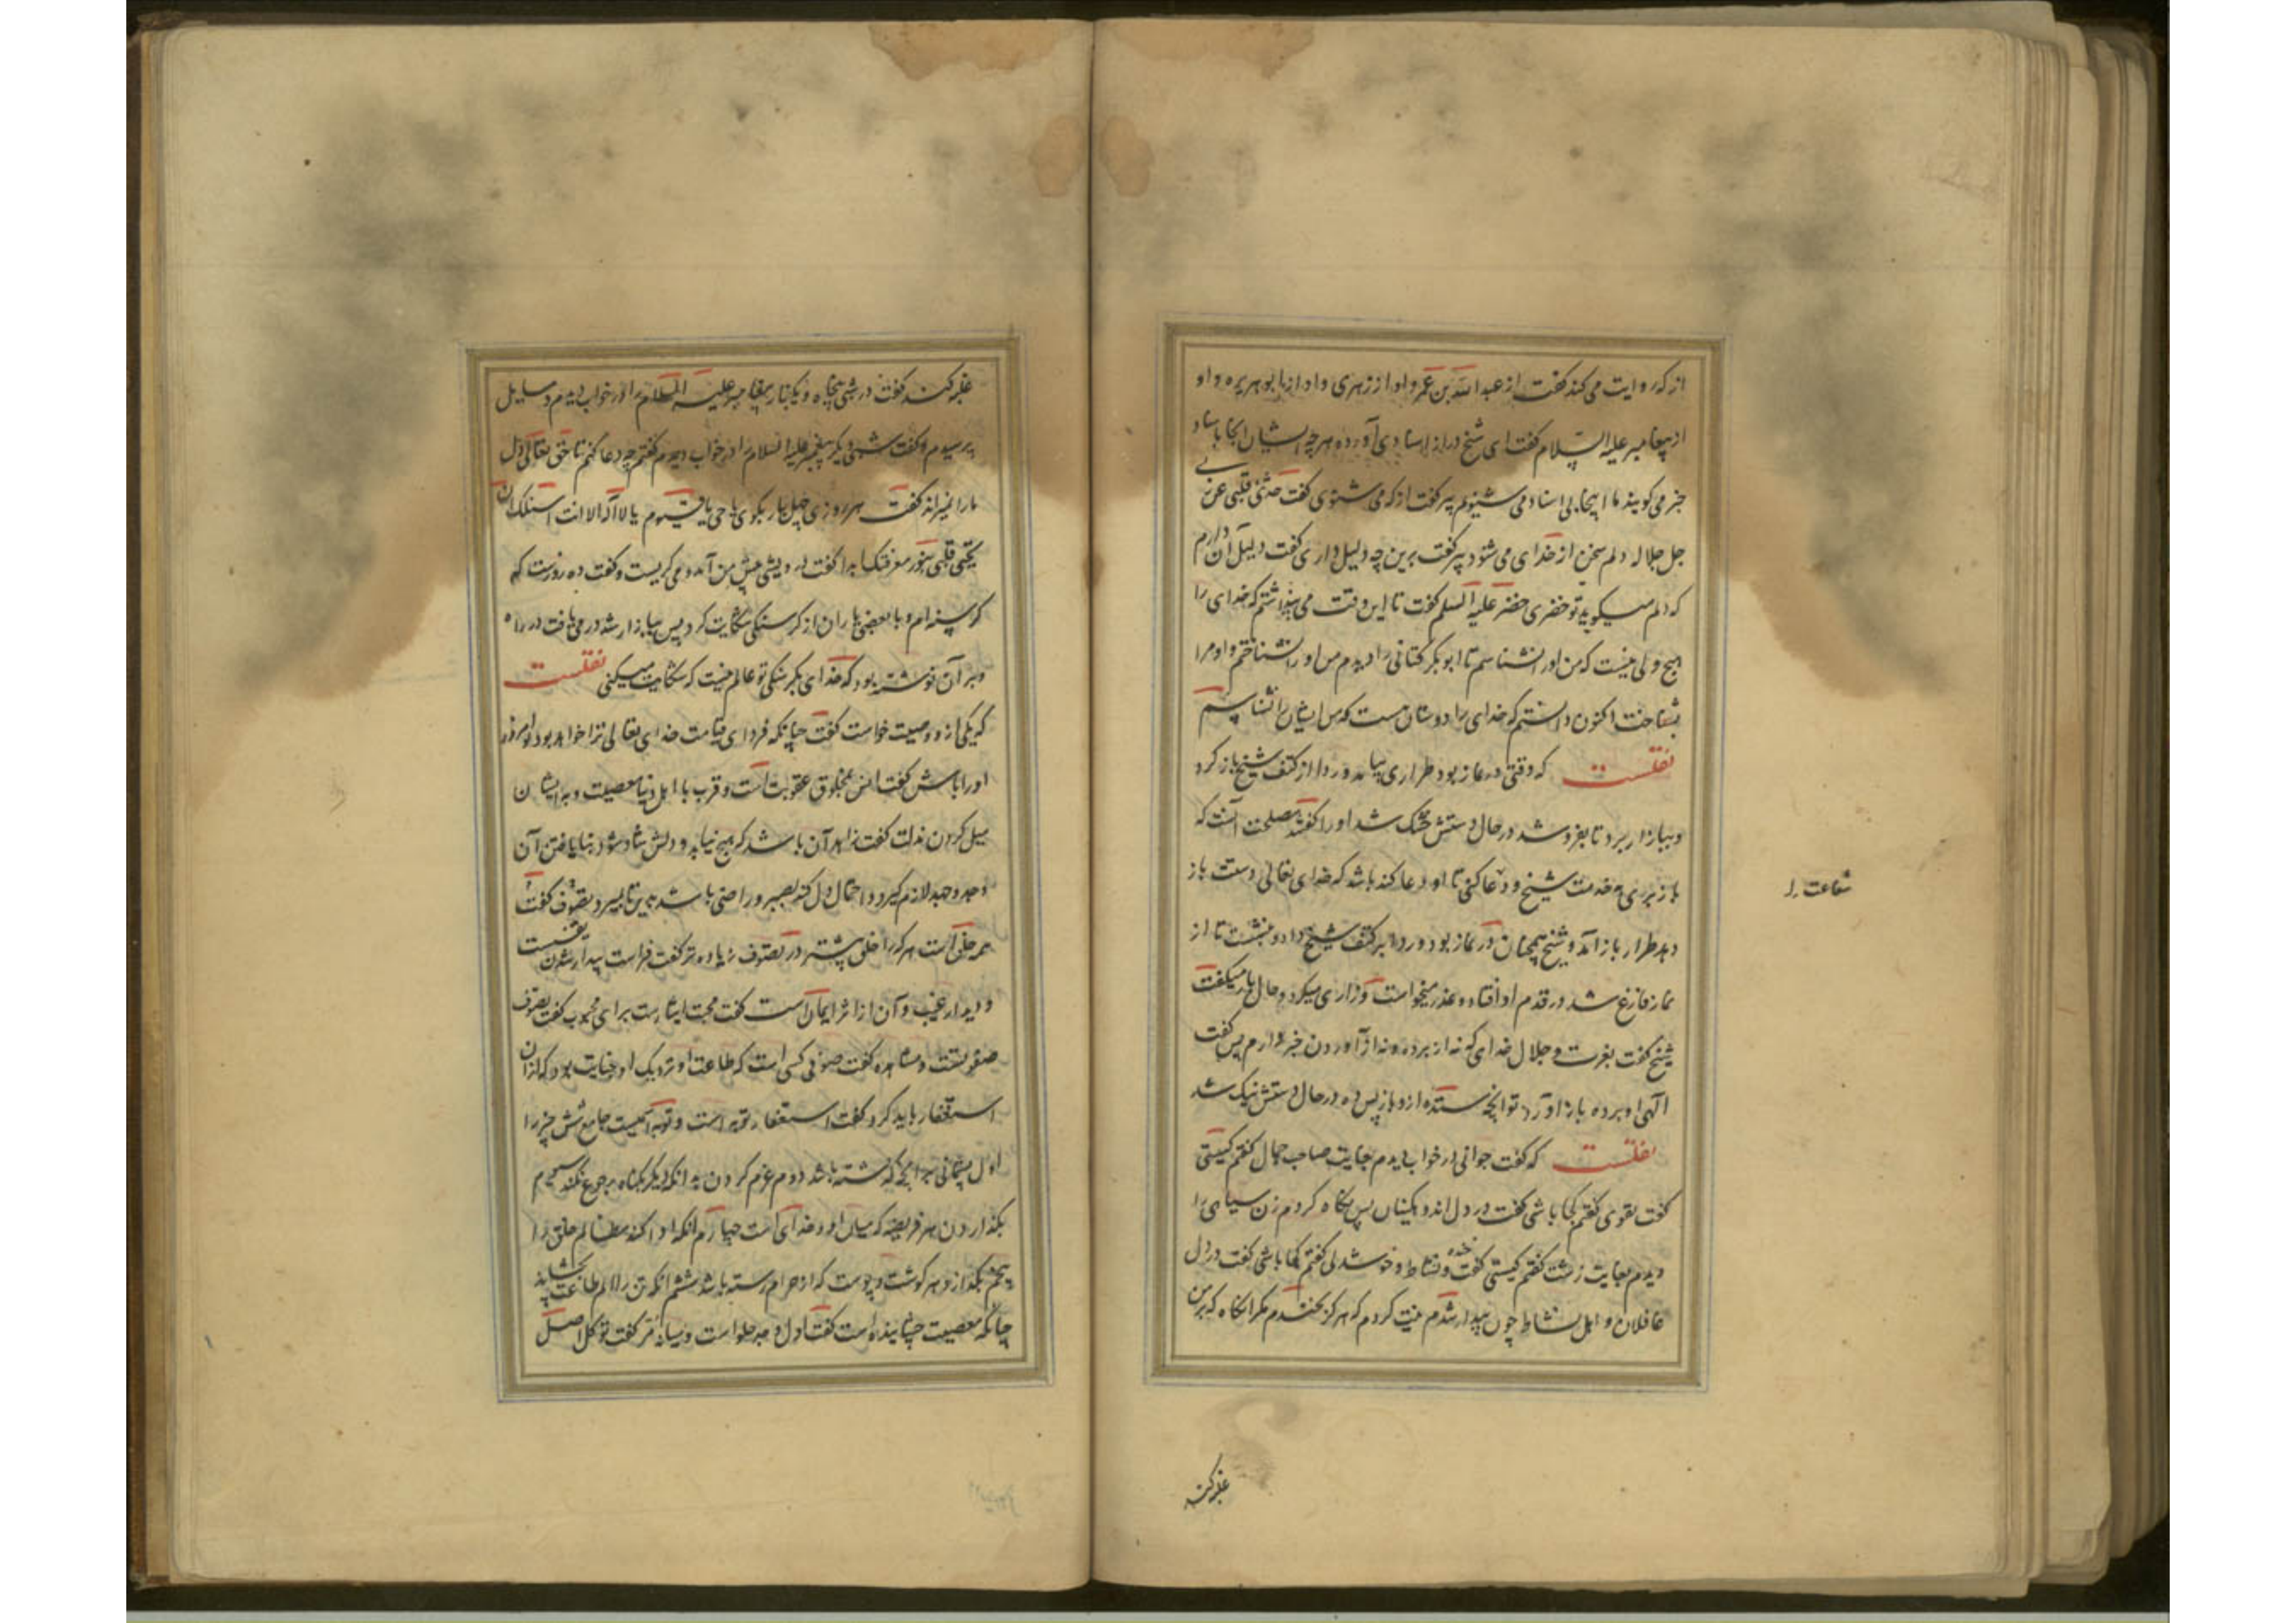 از که روایت می کند گفت از عبد الله بن عمر و او از زهری و او از ابو هریره و او
از پیغامبر علیه السلام گفت ای شیخ دراز اسنادی آوردی هرچه ایشان آنجا باسناد
خبر می گویند ما اینجا بی اسناد می شنویم پیر گفت از که می شنوی گفت حدثنی قلبی عن ربی
جل جلاله دلم سخن از خدای می شنود پیر گفت برین چه دلیل داری گفت دلیل آن دارم
که دلم میگوید تو خضری خضر علیه السلم گفت تا این وقت می پنداشتم که خدای را
هیچ ولی نیست که من او را نشناسم تا ابو بکر کتانی را دیدم من او را نشناختم و او مرا
بشناخت اکنون دانستم که خدای را دوستان هست که من ایشان را نشناسم
نقلست که وقتی در نماز بود طراری بیامد و ردا از کتف شیخ باز کرد
و ببازار برد تا بفروشد در حال دستش خشک شد او را گفتند مصلحت آنست که
باز بری بخدمت شیخ و دعا کنی تا او دعا کند باشد که خدای تعالی دست باز
شفاعت را
دهد طرار باز آمد و شیخ همچنان در نماز بود و ردا بر کتف شیخ داد و بنشست تا از
نماز فارغ شد در قدم او افتاد و عذر میخواست و زاری میکرد و حال باز میگفت
شیخ گفت بعزت و جلال خدای که نه از بردن و نه از آوردن خبر دارم پس گفت
الهی او برده باز آورد تو آنچه ستده ازو باز پس ده در حال دستش نیک شد
نقلست که گفت جوانی در خواب دیدم بغایت صاحب جمال گفتم کیستی
گفت تقوی گفتم کجا باشی گفت در دل اندوهگینان پس نگاه کردم زن سیاهی را
دیدم بغایت زشت گفتم کیستی گفت خنده و نشاط و خوشدلی گفتم کجا باشی گفت در دل
غافلان و اهل نشاط چون بیدار شدم نیت کردم که هرگز نخندم مگر آنگاه که بر من
غلبه کند
غلبه کند گفت در شبی پنجاه و یکبار پیغامبر علیه السلام را در خواب دیدم و مسایل
پرسیدم و گفت شبی دیگر پیغمبر علیه السلام را در خواب دیدم گفتم چه دعا کنم تا حق تعالی دل
ما را نمیراند گفت هر روزی چهل بار بگوی یا حی یا قیوم یا لا اله الا انت اسئلک ان
تحیی قلبی بنور معرفتک ابدا گفت درویشی پیش من آمد و می گریست و گفت ده روزست که
گرسنه ام و با بعضی یاران از گرسنگی شکایت کردم پس ببازار شد درمی یافت در راه
و بر آن نوشته بود که خدای بگرسنگی تو عالم نیست که شکایت میکنی نقلست
که یکی ازو وصیت خواست گفت چنانکه فردای قیامت خدای تعالی ترا خواهد بود تو امروز
او را باش گفت انس بمخلوق عقوبت است و قرب با اهل دنیا معصیت و به ایشان
میل کردن مذلت گفت زاهد آن باشد که هیچ نیابد و دلش شاد شود بنا یافتن آن
و جد و جهد لازم گیرد و احتمال ذل کند بصبر و راضی باشد بدین تا بمیرد تصوف گفت
همه خلق است هر که را خلق بیشتر در تصوف زیاده تر گفت فراست پیدا شدن یقینست
و دیدار غیب و آن از اثر ایمان است گفت محبت ایثارست برای محبوب گفت تصوف
صفوتست و مشاهده گفت صوفی کسی است که طاعت او نزدیک او جنایت بود که از آن
استغفار باید کرد گفت استغفار توبه است و توبه اسمیست جامع شش چیز را
اول پشیمانی بر آنچه گذشته باشد دوم عزم کردن بدانکه دیگر بگناه رجوع نکند سیوم
بگذاردن هر فریضه که میان او و خدای است چهارم آنکه ادا کند مظالم خلق را
پنجم بگدازد هر گوشت و پوست که از حرام رسته باشد ششم آنکه تن را الم طاعت بچشاند
چنانکه معصیت چشانیده است گفت